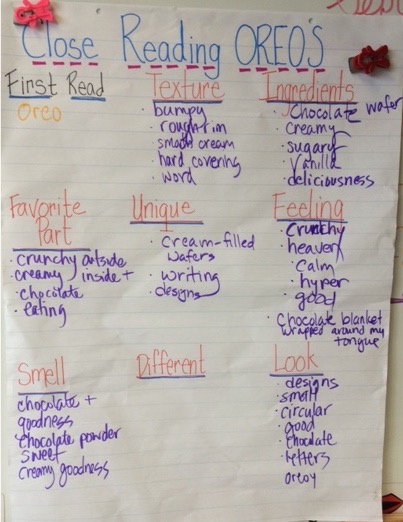 Close Reading OREOS
First Read
Oreo
Texture
· bumpy
· rough rim
· smooth cream
· hard covering
· word
Ingredients
· Chocolate wafer
· creamy
· sugary
· Vanilla
· deliciousness
Favorite
Part
· crunchy outside
· creamy inside +
· chocolate
· eating
Unique
· Cream-filled
wafers
· writing
· designs
Feeling
· Crunchy
· heaven
· calm
· hyper
· good
· Chocolate blanket
wrapped around my
tongue
Smell
chocolate +
goodness
chocolate powder
sweet
creamy goodness
Different
Look
· designs
· small
· circular
· good
· chocolate
· letters
· oreoy